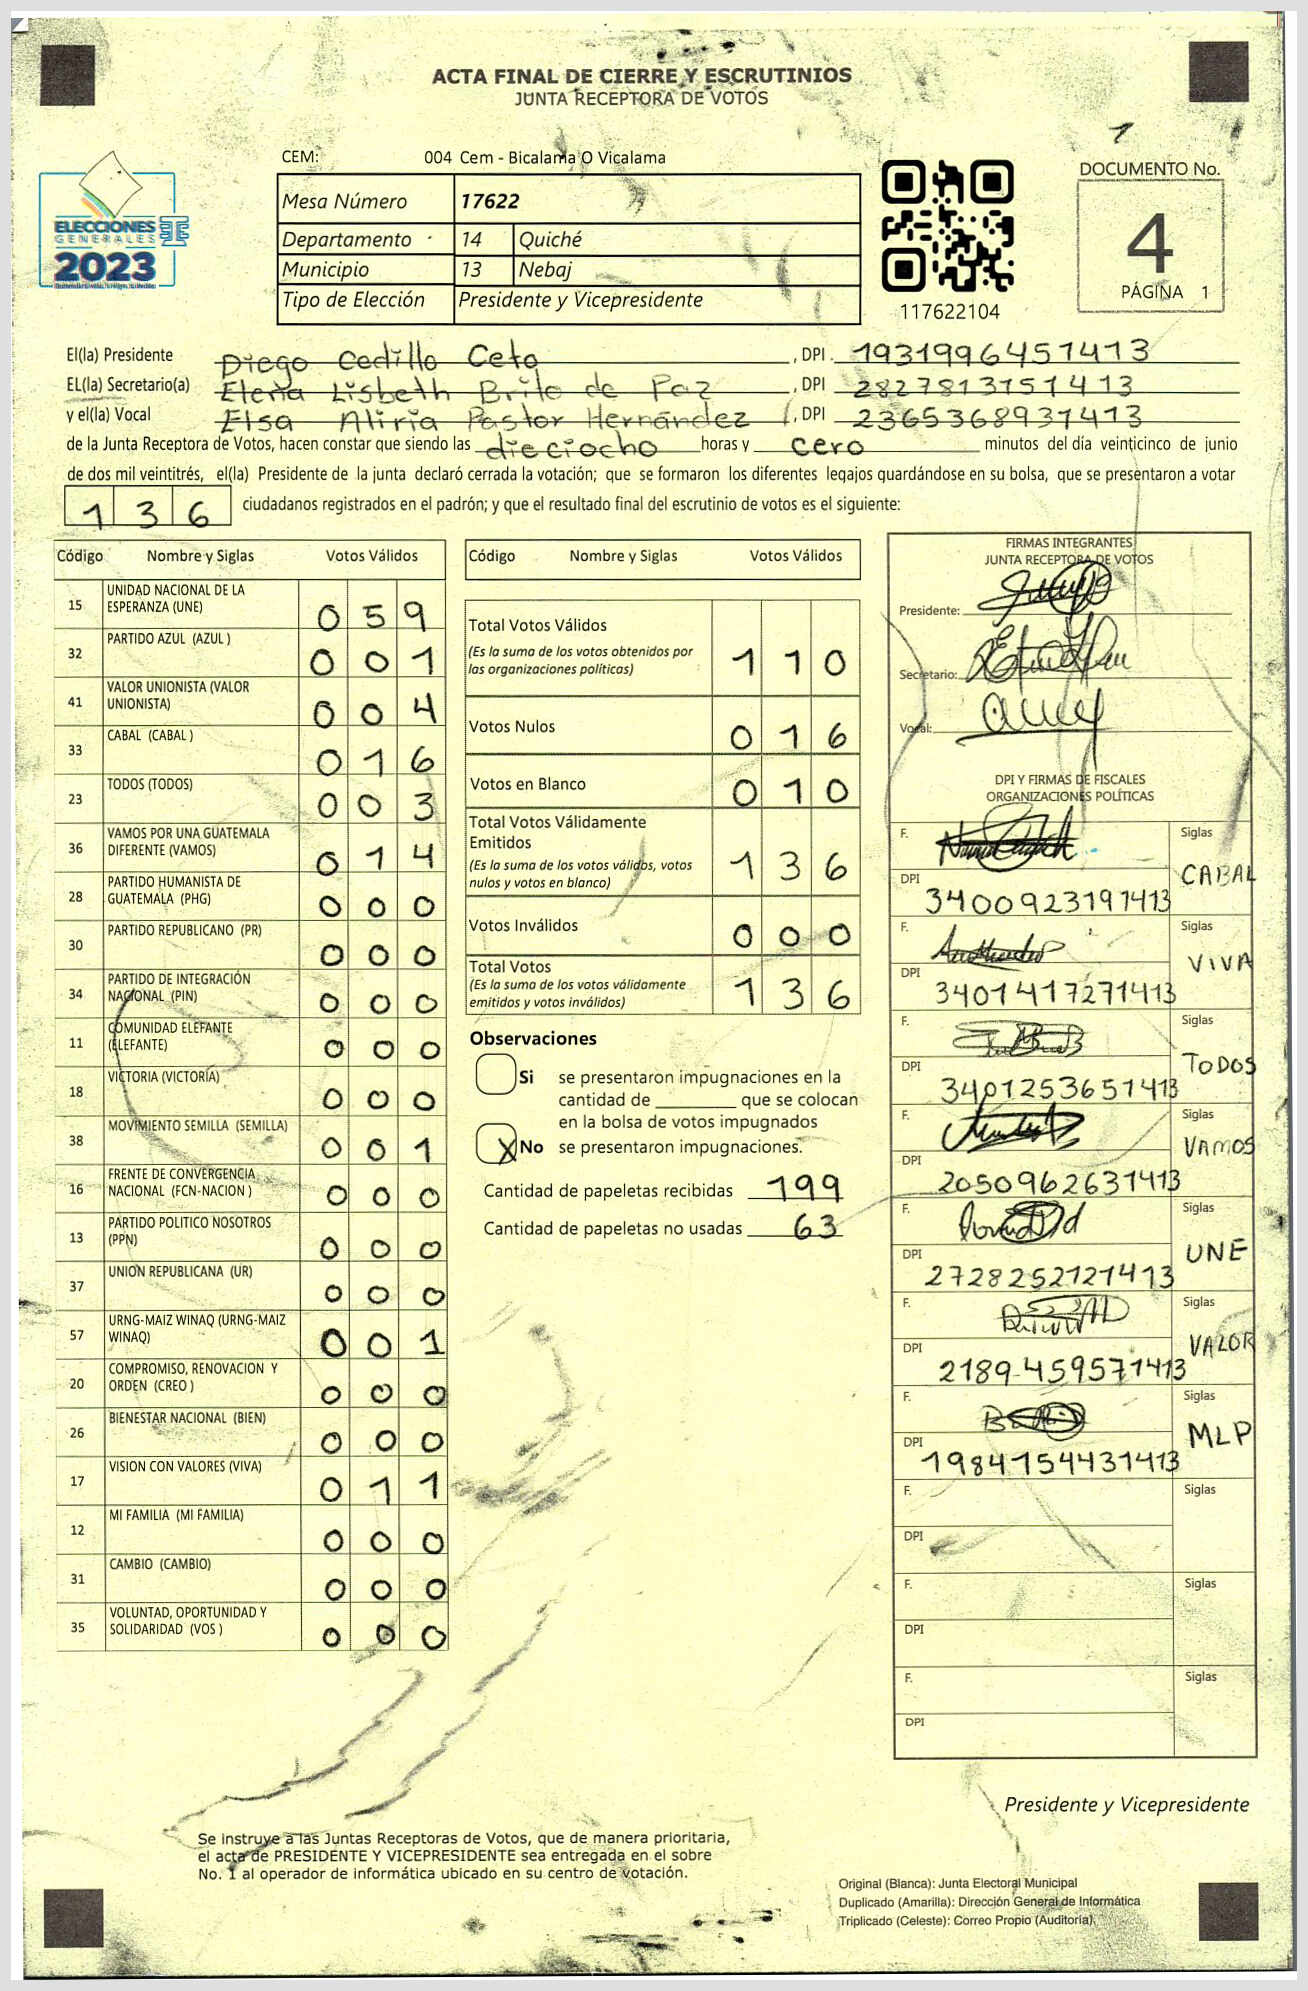 ACTA FINAL DE CIERRE Y ESCRUTINIOS
JUNTA RECEPTORA DE VOTOS
1
CEM: 004 Cem - Bicalama O Vicalama
ELECCIONES
GENERALES
2023
Mesa Número 17622
Departamento 14 Quiché
Municipio 13 Nebaj
Tipo de Elección Presidente y Vicepresidente
117622104
DOCUMENTO No.
4
PÁGINA 1
El(la) Presidente Diego Cedillo Ceto , DPI 1931996451413
EL(la) Secretario(a) Elena Lisbeth Brito de Paz , DPI 2827813151413
y el(la) Vocal Elsa Aliria Pastor Hernández , DPI 2365368931413
de la Junta Receptora de Votos, hacen constar que siendo las dieciocho horas y cero minutos del día veinticinco de junio
de dos mil veintitrés, el(la) Presidente de la junta declaró cerrada la votación; que se formaron los diferentes legajos guardándose en su bolsa, que se presentaron a votar
136 ciudadanos registrados en el padrón; y que el resultado final del escrutinio de votos es el siguiente:
Código Nombre y Siglas Votos Válidos
15 UNIDAD NACIONAL DE LA
ESPERANZA (UNE) 059
32 PARTIDO AZUL (AZUL ) 001
41 VALOR UNIONISTA (VALOR
UNIONISTA) 004
33 CABAL (CABAL ) 016
23 TODOS (TODOS) 003
36 VAMOS POR UNA GUATEMALA
DIFERENTE (VAMOS) 014
28 PARTIDO HUMANISTA DE
GUATEMALA (PHG) 000
30 PARTIDO REPUBLICANO (PR) 000
34 PARTIDO DE INTEGRACIÓN
NACIONAL (PIN) 000
11 COMUNIDAD ELEFANTE
(ELEFANTE) 000
18 VICTORIA (VICTORIA) 000
38 MOVIMIENTO SEMILLA (SEMILLA) 001
16 FRENTE DE CONVERGENCIA
NACIONAL (FCN-NACION ) 000
13 PARTIDO POLITICO NOSOTROS
(PPN) 000
37 UNION REPUBLICANA (UR) 000
57 URNG-MAIZ WINAQ (URNG-MAIZ
WINAQ) 001
20 COMPROMISO, RENOVACION Y
ORDEN (CREO ) 000
26 BIENESTAR NACIONAL (BIEN) 000
17 VISION CON VALORES (VIVA) 011
12 MI FAMILIA (MI FAMILIA) 000
31 CAMBIO (CAMBIO) 000
35 VOLUNTAD, OPORTUNIDAD Y
SOLIDARIDAD (VOS ) 000
Código Nombre y Siglas Votos Válidos
Total Votos Válidos
(Es la suma de los votos obtenidos por
las organizaciones políticas) 110
Votos Nulos 016
Votos en Blanco 010
Total Votos Válidamente
Emitidos
(Es la suma de los votos válidos, votos
nulos y votos en blanco) 136
Votos Inválidos 000
Total Votos
(Es la suma de los votos válidamente
emitidos y votos inválidos) 136
Observaciones
Si se presentaron impugnaciones en la
cantidad de ________ que se colocan
en la bolsa de votos impugnados
X No se presentaron impugnaciones.
Cantidad de papeletas recibidas 199
Cantidad de papeletas no usadas 63
FIRMAS INTEGRANTES
JUNTA RECEPTORA DE VOTOS
Presidente:
Secretario:
Vocal:
DPI Y FIRMAS DE FISCALES
ORGANIZACIONES POLÍTICAS
F. Siglas
CABAL
DPI 3400923191413
F. Siglas
VIVA
DPI 3401417271413
F. Siglas
TODOS
DPI 3401253651413
F. Siglas
VAMOS
DPI 2050962631413
F. Siglas
UNE
DPI 2728252121413
F. Siglas
VALOR
DPI 2189459571413
F. Siglas
MLP
DPI 1984154431413
F. Siglas
DPI
F. Siglas
DPI
F. Siglas
DPI
Presidente y Vicepresidente
Se instruye a las Juntas Receptoras de Votos, que de manera prioritaria,
el acta de PRESIDENTE Y VICEPRESIDENTE sea entregada en el sobre
No. 1 al operador de informática ubicado en su centro de votación.
Original (Blanca): Junta Electoral Municipal
Duplicado (Amarilla): Dirección General de Informática
Triplicado (Celeste): Correo Propio (Auditoría)